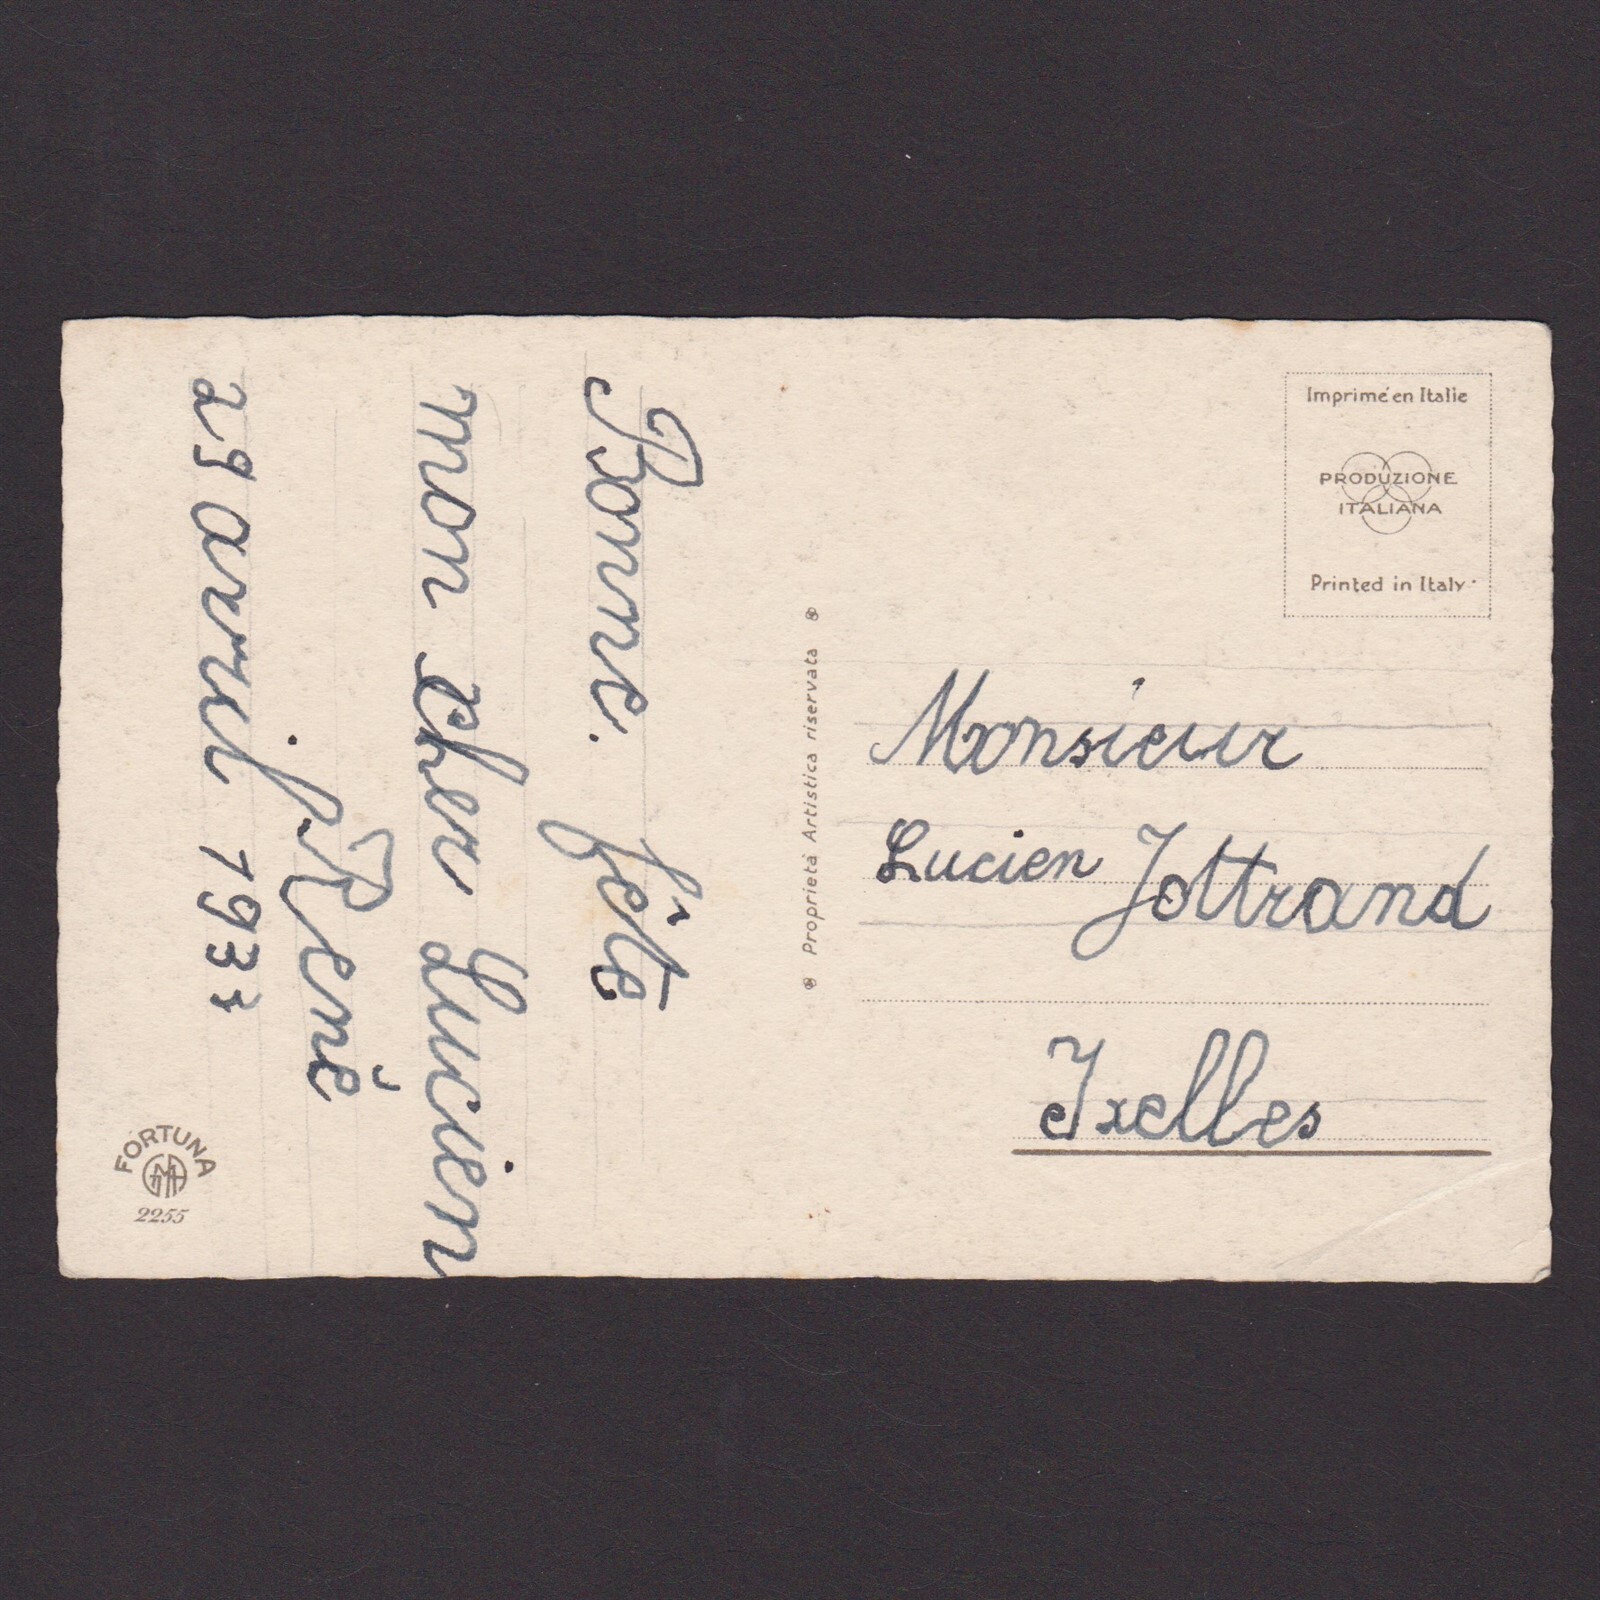 Bonne. fête
mon cher Lucien
René
29 avril 1933
FORTUNA
2255
Proprietà Artistica riservata
Imprimé en Italie
PRODUZIONE
ITALIANA
Printed in Italy
Monsieur
Lucien Jottrand
Ixelles